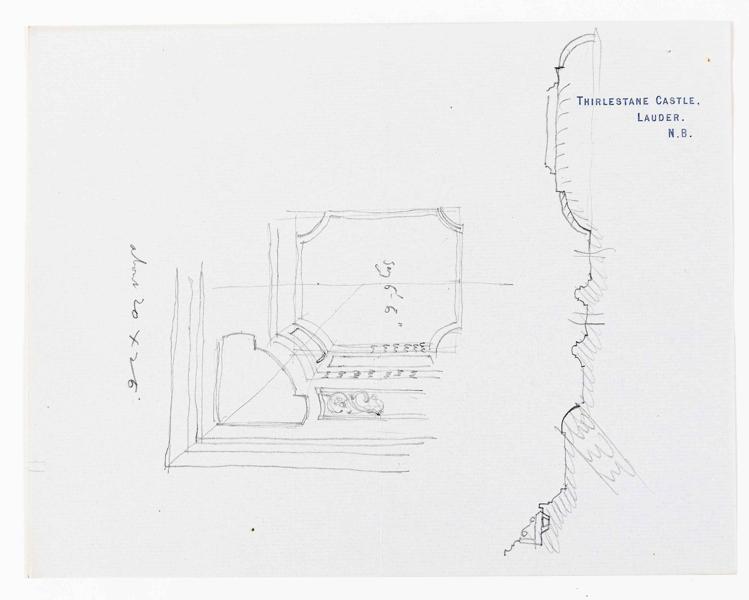 THIRLESTANE CASTLE,
LAUDER.
N.B.
Say 6'-6"
about 20 x 26